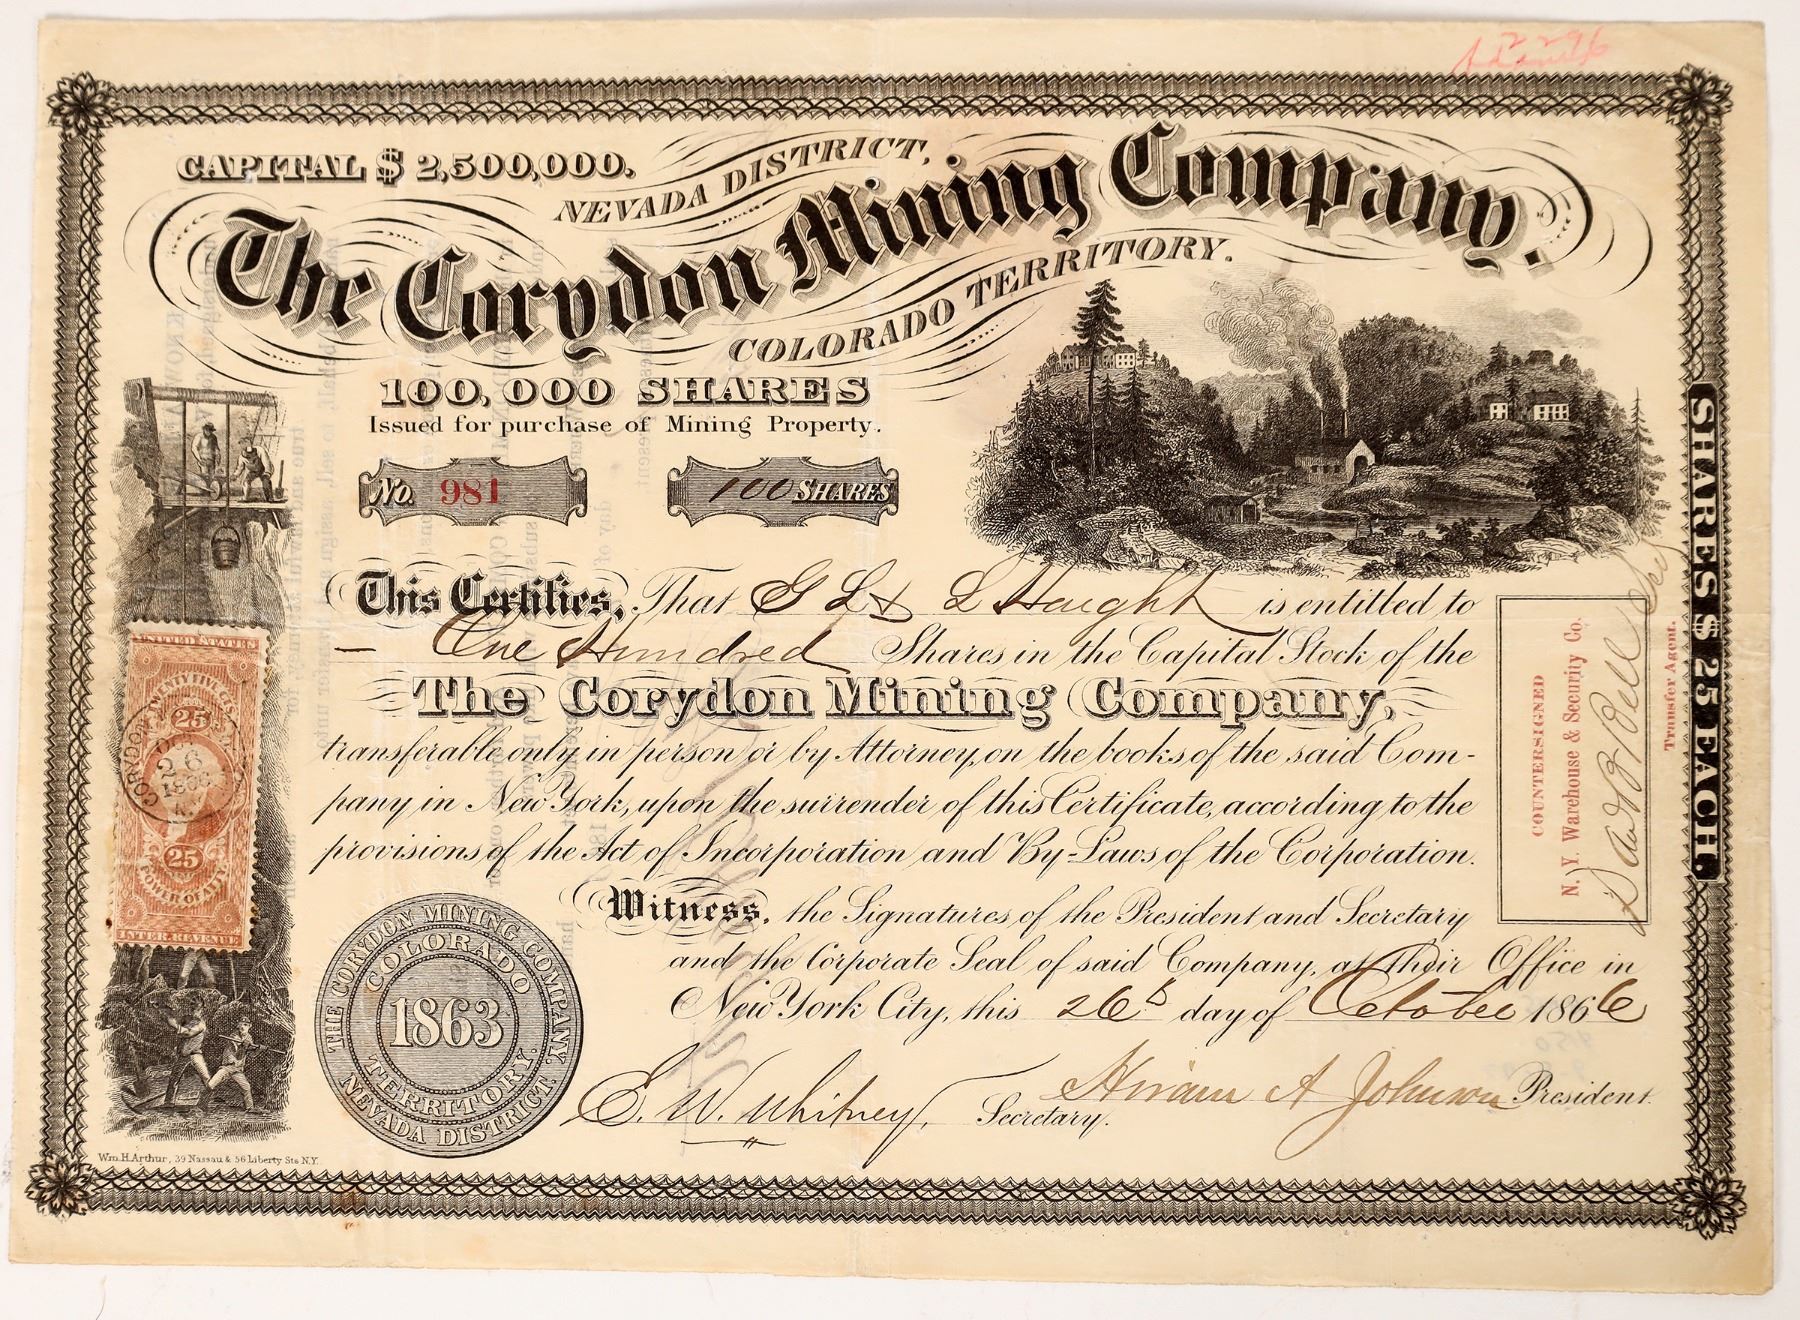 2296
CAPITAL $ 2,500,000.
NEVADA DISTRICT,
The Corydon Mining Company.
COLORADO TERRITORY.
100,000 SHARES
Issued for purchase of Mining Property.
No. 981
100 SHARES
This Certifies, That G L & L Haight is entitled to
One Hundred Shares in the Capital Stock of the
The Corydon Mining Company,
transferable only in person or by Attorney, on the books of the said Com-
pany in New York, upon the surrender of this Certificate, according to the
provisions of the Act of Incorporation and By-Laws of the Corporation.
Witness, the Signatures of the President and Secretary
and the Corporate Seal of said Company, at their Office in
New York City, this 26th day of October 1866
E. W. Whitney, Secretary.
Hiram A Johnson President.
THE CORYDON MINING COMPANY.
COLORADO
1863
TERRITORY.
NEVADA DISTRICT.
UNITED STATES
TWENTY FIVE CTS
25
CORYDON
OCT
26
1866
25
POWER OF AT'Y.
INTER. REVENUE
COUNTERSIGNED
N. Y. Warehouse & Security Co.
Transfer Agent.
SHARES $ 25 EACH.
Wm. H. Arthur, 39 Nassau & 56 Liberty Sts N.Y.